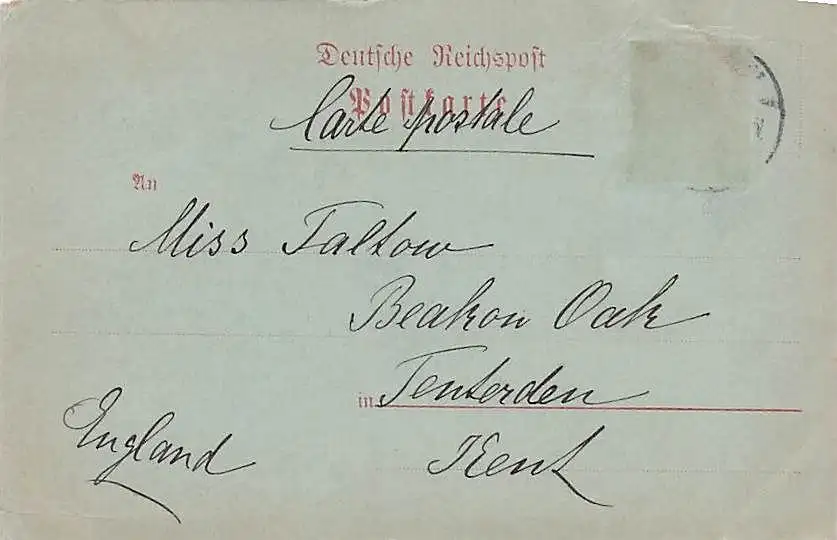 Deutsche Reichspost
Postkarte
Carte postale
An
Miss Taltow
Beakon Oak
in Tenterden
Kent
England